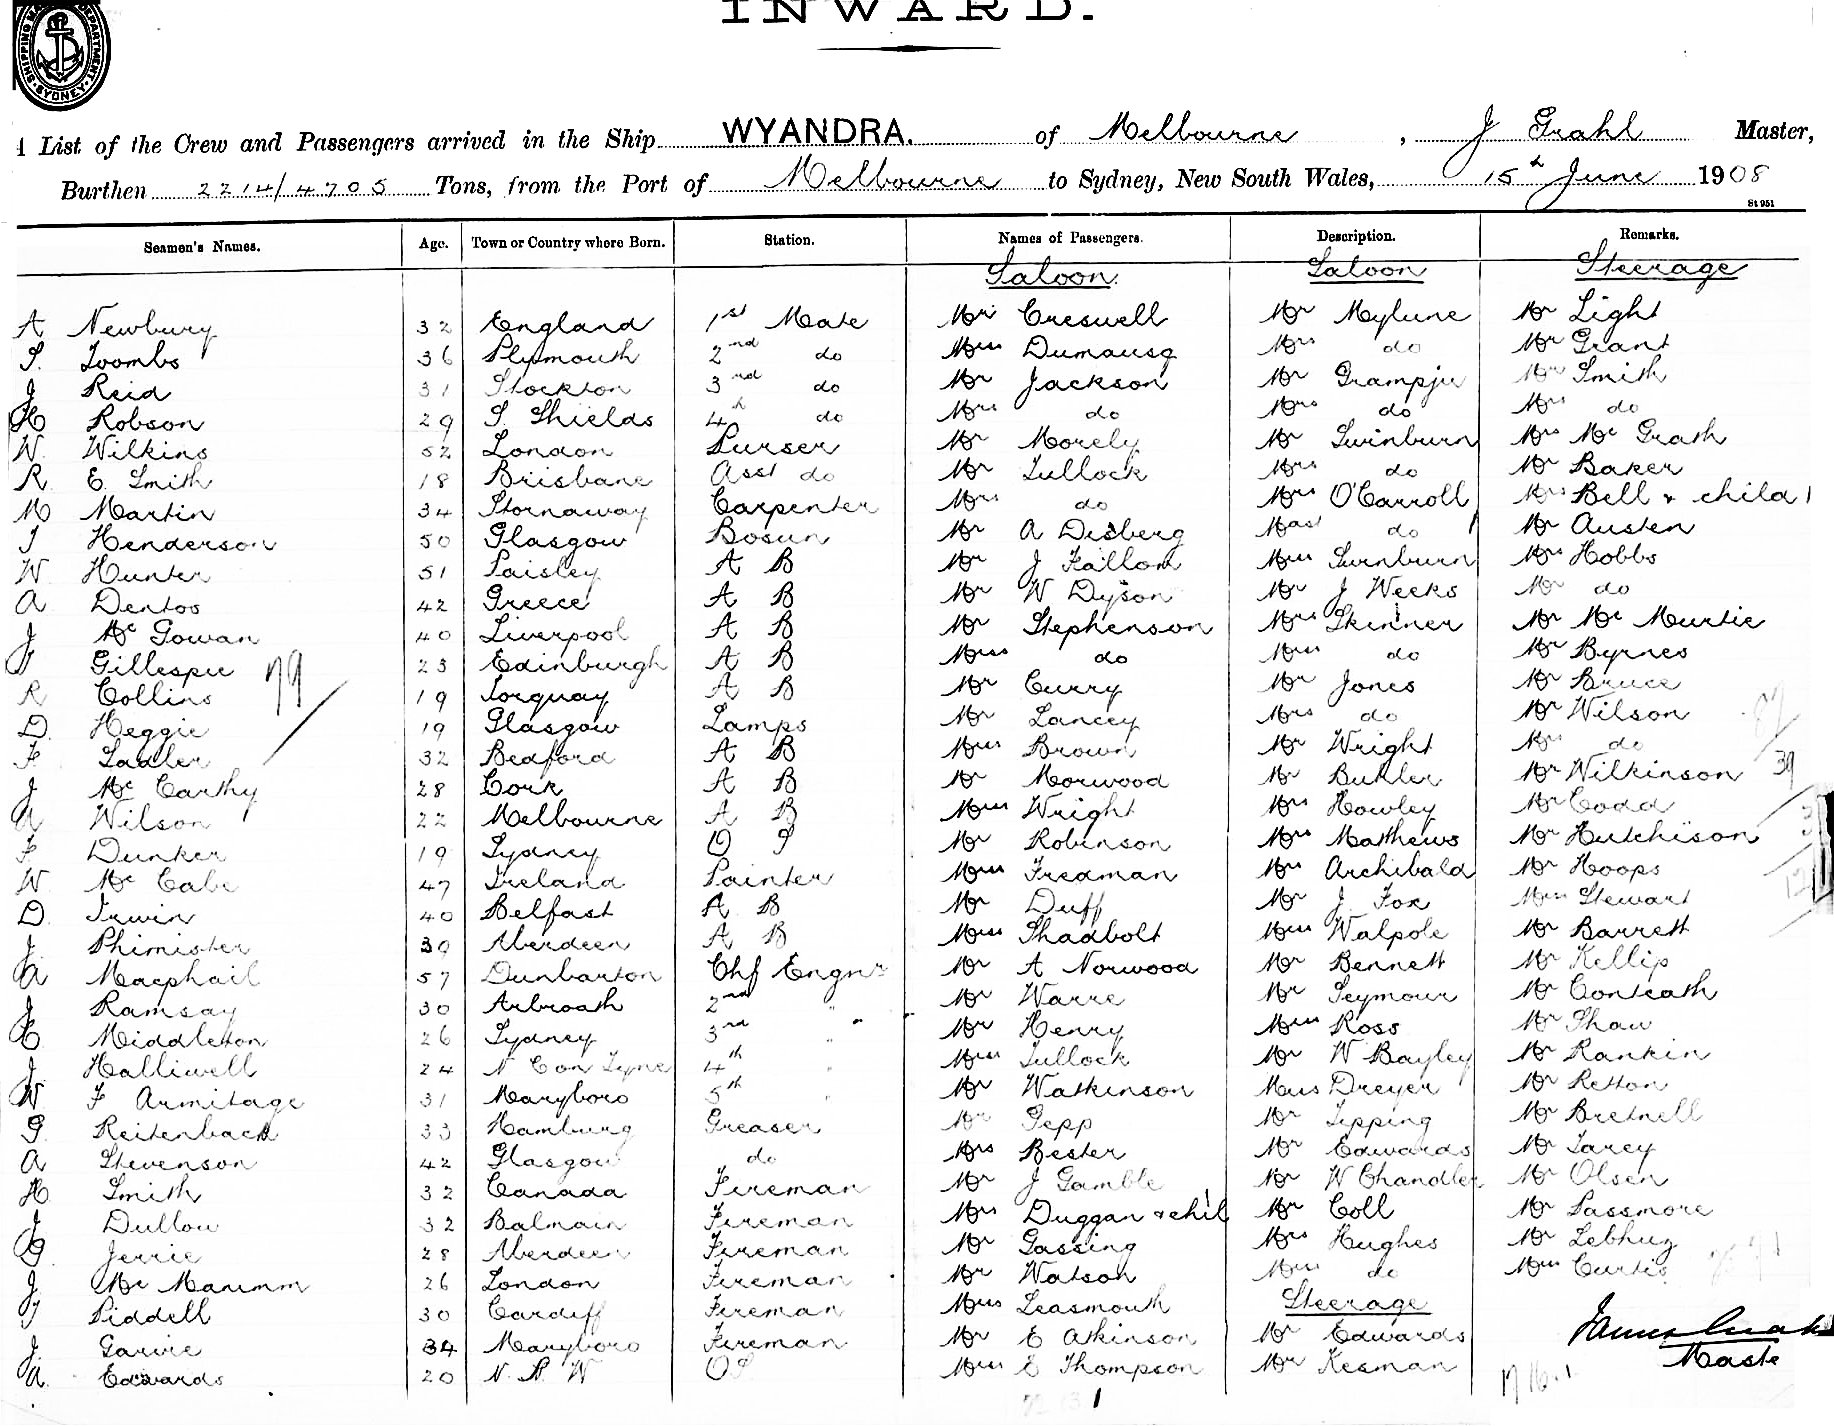 INWARD.
SHIPPING MASTER'S DEPARTMENT SYDNEY
List of the Crew and Passengers arrived in the Ship WYANDRA. of Melbourne , J Grahl Master,
Burthen 2214/4705 Tons, from the Port of Melbourne to Sydney, New South Wales, 15th June 1908
St 951
Seamen's Names. Age. Town or Country where Born. Station. Names of Passengers. Description. Remarks.
Saloon. Saloon Steerage
A Newbury 32 England 1st Mate Mr Creswell Mr Mylune Mr Light
S. Toombs 36 Plymouth 2nd do Miss Mrs do Mr Grant
J Reid 31 Stockton 3rd do Mr Jackson Mr Mr Smith
H Robson 29 S. Shields 4th do Mrs do Mrs do Mrs do
W. Wilkins 52 London Purser Mr Morely Mr Swinburn Mrs Mc Grath
R. E. Smith 18 Brisbane Asst do Mr Tullock Mrs do Mr Baker
M Martin 34 Stornaway Carpenter Mrs do Mrs O'Carroll Mrs Bell & child 1
J Henderson 50 Glasgow Bosun Mr A Disberg Mast do 1 Mr Austen
W Hunter 51 Paisley A B Mr J Fallon Miss Swinburn Mrs Hobbs
A Dentos 42 Greece A B Mr W Dyson Mr J Weeks Mr do
J Mc Gowan 40 Liverpool A B Mr Stephenson Mrs Skinner Mr Mc Murtie
Gillespie 79 23 Edinburgh A B Miss do Miss do Mr Byrnes
R Collins 19 Torquay A B Mr Curry Mr Jones Mr Bruce
D. Heggie 19 Glasgow Lamps Mr Lancey Mrs do Mr Wilson
F. Sadler 32 Bedford A B Miss Brown Mr Wright Mrs do
J Mc Carthy 28 Cork A B Mr Morwood Mr Buhler Mr Wilkinson 39
A Wilson 22 Melbourne A B Miss Wright Mrs Howley Mr Codd
F Dunker 19 Sydney O S Mr Robinson Mrs Matthews Mr Hutchison
W Mc Cabe 47 Ireland Painter Miss Fredman Mrs Archibald Mr Hoops
D. Irwin 40 Belfast A B Mr Duff Mr J Fox Miss Stewart
J. Phimister 39 Aberdeen A B Miss Shadbolt Miss Walpole Mr Barrett
A Macphail 57 Dunbarton Chf Engnr Mr A Norwood Mr Bennett Mr Kellip
J Ramsay 30 Arbroath 2nd " Mr Warre Mr Seymour Mr Conteath
C. Middleton 26 Sydney 3rd " Mr Henry Miss Ross Mr Shaw
J Halliwell 24 N Con Tyne 4th " Miss Tullock Mr W Bayley Mr Rankin
W F Armitage 31 Maryboro 5th " Mr Watkinson Miss Dreyer Mr Retton
G. Reitenback 33 Hamburg Greaser Mr Gepp Mr Tipping Mr Bretnell
A Stevenson 42 Glasgow do Mrs Bester Mr Edwards Mr Tarey
H Smith 32 Canada Fireman Mr J Gamble Mr W Chandler Mr Olsen
J Dullow 32 Balmain Fireman Mrs Duggan & chil Mr Coll Mr Passmore
Jerrie 28 Aberdeen Fireman Mr Gassing Mrs Hughes Mr
J Mc Manimm 26 London Fireman Mr Watson Miss do Miss Curtis
Piddell 30 Cardiff Fireman Miss Leasmouth Steerage
J. Garvie 34 Maryboro Fireman Mr E Atkinson Mr Edwards
A. Edwards 20 N. S. W OS Miss E Thompson Mr Kesman
James Grahl
Maste